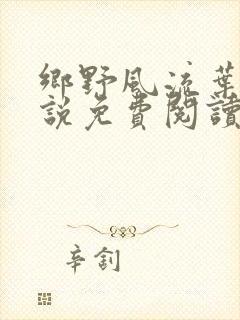 鄉野風流葉
說免費閱讀
辛